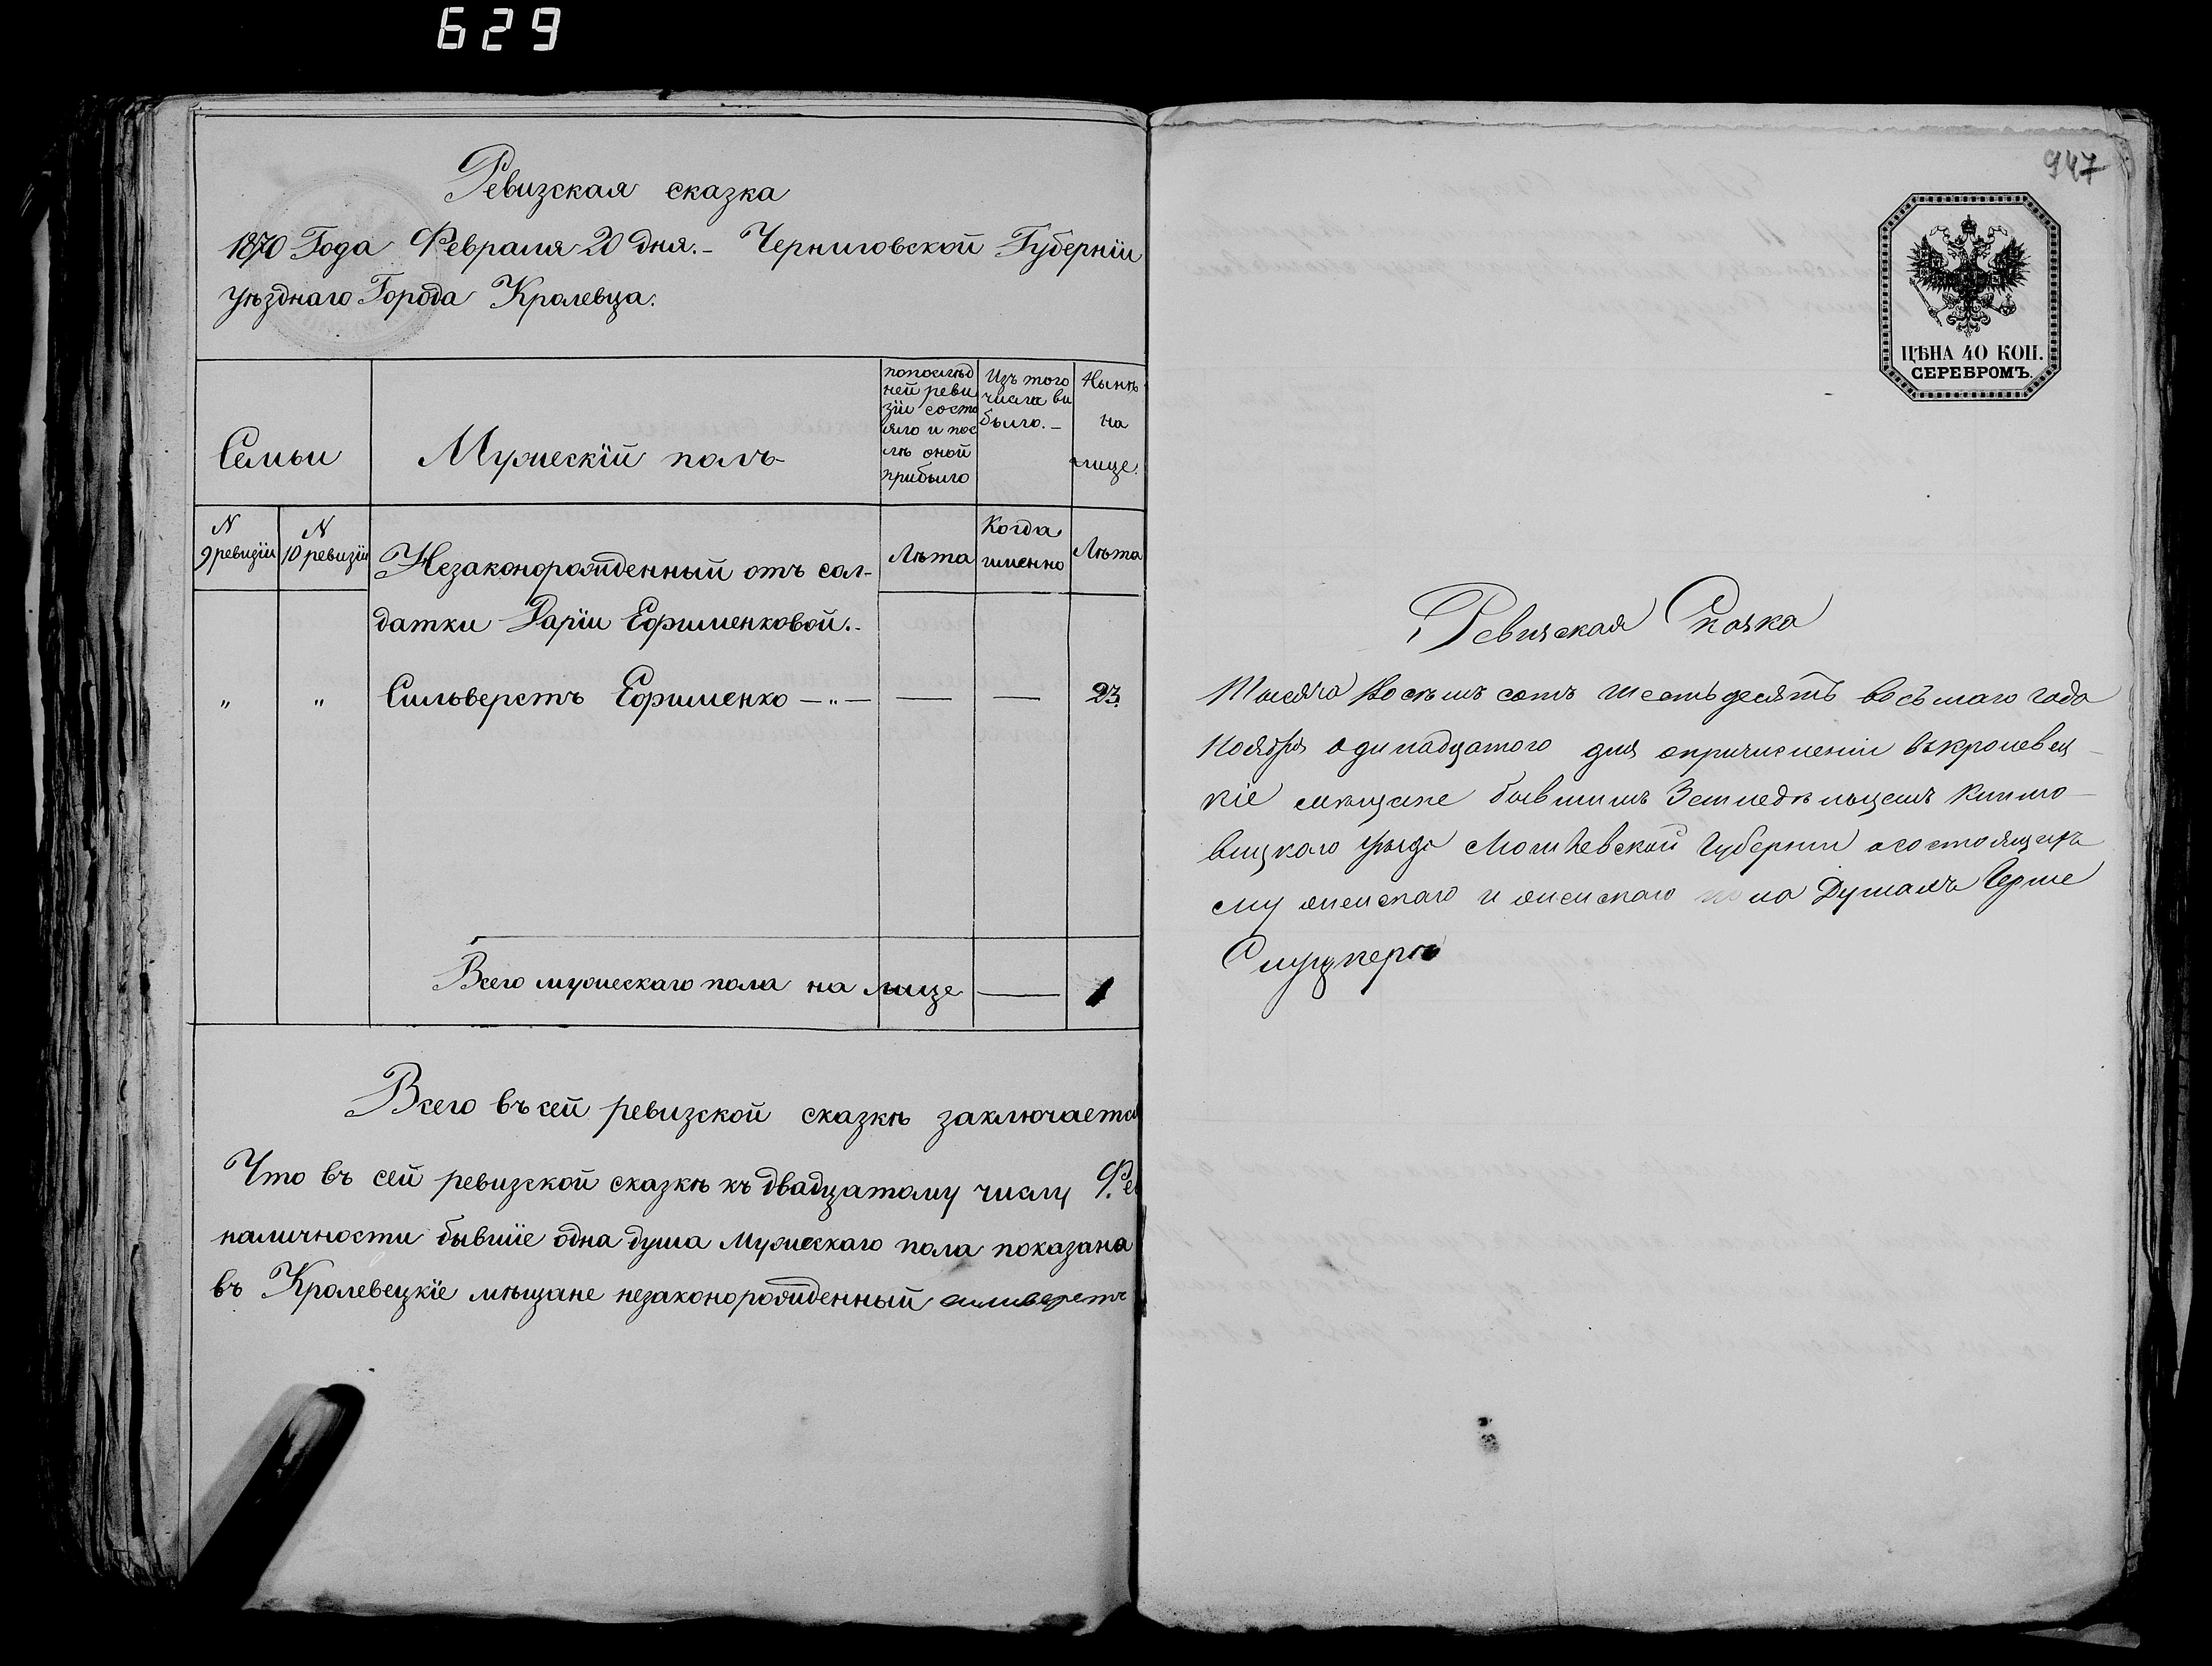 629
Ревизская сказка
1870 Года Февраля 20 дня.- Черниговской Губернiи
уѣзднаго Города Кролевца.
Семьи
Мужескiй полъ
попослѣд
ней реви
зiи состо
яло и пос
лѣ оной
прибыло
Изъ того
числа вы
было.-
Нынѣ
на
лице.
N
9 ревизiи
N
10 ревизiи
Незаконорожденный отъ сол-
датки Дарiи Ефименковой.-
Лѣта
Когда
именно
Лѣта
" " Сильверстъ Ефименко —"— — — 23.
Всего мужескаго пола на лице — 1
Всего въ сей ревизской сказкѣ заключаетс
Что въ сей ревизской сказкѣ къ двадцатому числу Фев
наличности бывшiе одна душа мужескаго пола показана
въ Кролевецкiе мѣщане незаконорожденный сильверстъ
947
ЦѢНА 40 КОП.
СЕРЕБРОМЪ.
Ревизская Сказка
Тысяча восемь сотъ шестьдесятъ восьмаго года
Ноября одинадцатого дня опричисленiи въкролевец-
кiе мѣщане бывшимъ Земледѣльцемъ Климо-
вицкого уѣзда Могилевской Губернiи осостоящихъ
му женскаго и женскаго пола Душахъ Герше
Слуцкеръ